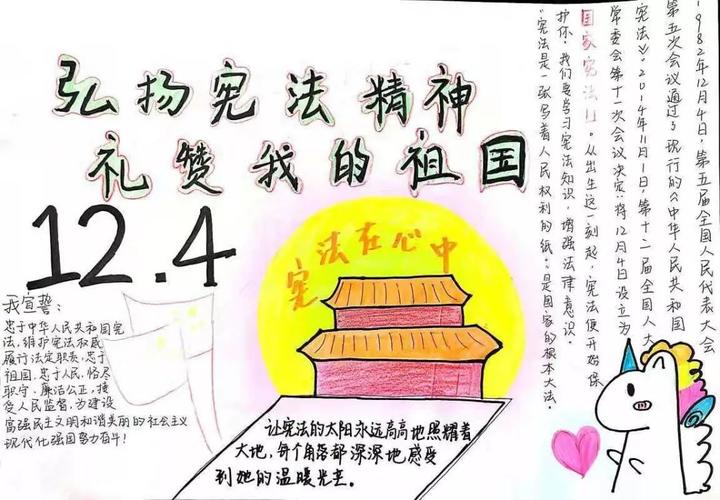 弘扬宪法精神
礼赞我的祖国
12.4
宪法在心中
我宣誓:
忠于中华人民共和国宪
法,维护宪法权威
履行法定职责,忠于
祖国,忠于人民,恪尽
职守、廉洁公正,接
受人民监督,为建设
富强民主文明和谐美丽的社会主义
现代化强国努力奋斗!
让宪法的太阳永远高高地照耀着
大地,每个角落都深深地感受
到她的温暖光芒。
1982年12月4日,第五届全国人民代表大会
第五次会议通过了现行的《中华人民共和国
宪法》。2014年11月1日,第十二届全国人大
常委会第十一次会议决定:将12月4日设立为
国家宪法日。从出生这一刻起,宪法便开始保
护你。我们要学习宪法知识,增强法律意识。
"宪法是一张写着人民权利的纸",是国家的根本大法。